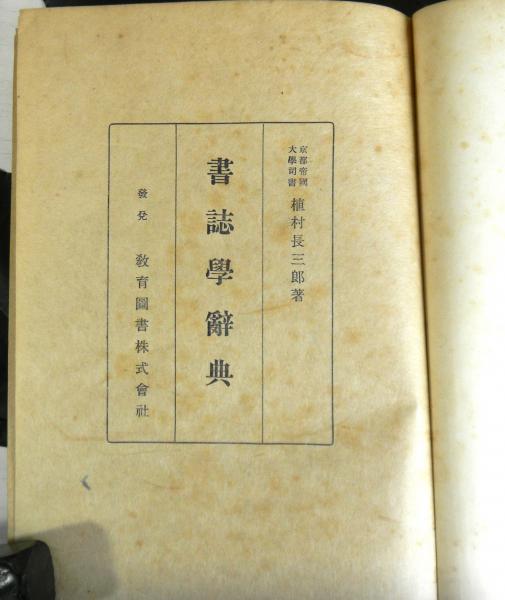 京都帝國
大學司書
植村長三郎著
書誌學辭典
發兌
敎育圖書株式會社